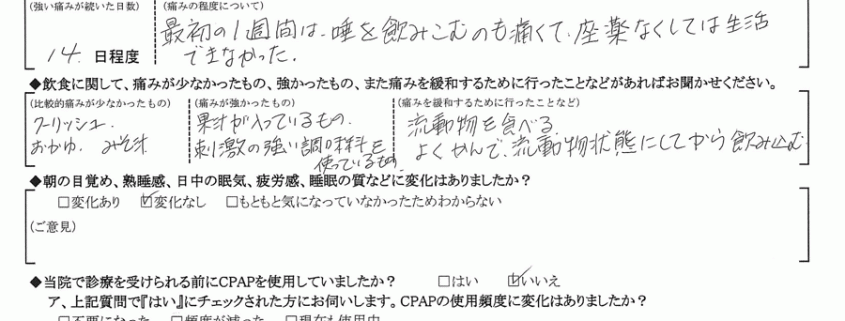 (強い痛みが続いた日数) (痛みの程度について)
最初の1週間は、唾を飲みこむのも痛くて、座薬なくしては生活
14 日程度 できなかった。
◆飲食に関して、痛みが少なかったもの、強かったもの、また痛みを緩和するために行ったことなどがあればお聞かせください。
(比較的痛みが少なかったもの) (痛みが強かったもの) (痛みを緩和するために行ったことなど)
クーリッシュ. 果汁が入っているもの. 流動物を食べる.
おかゆ. みそ汁 刺激の強い調味料を よくかんで、流動物状態にしてから飲み込む
使っているもの.
◆朝の目覚め、熟睡感、日中の眠気、疲労感、睡眠の質などに変化はありましたか?
□変化あり ☑変化なし □もともと気になっていなかったためわからない
(ご意見)
◆当院で診療を受けられる前にCPAPを使用していましたか? □はい ☑いいえ
ア、上記質問で『はい』にチェックされた方にお伺いします。CPAPの使用頻度に変化はありましたか?
□不要になった □頻度が減った □現在も使用中